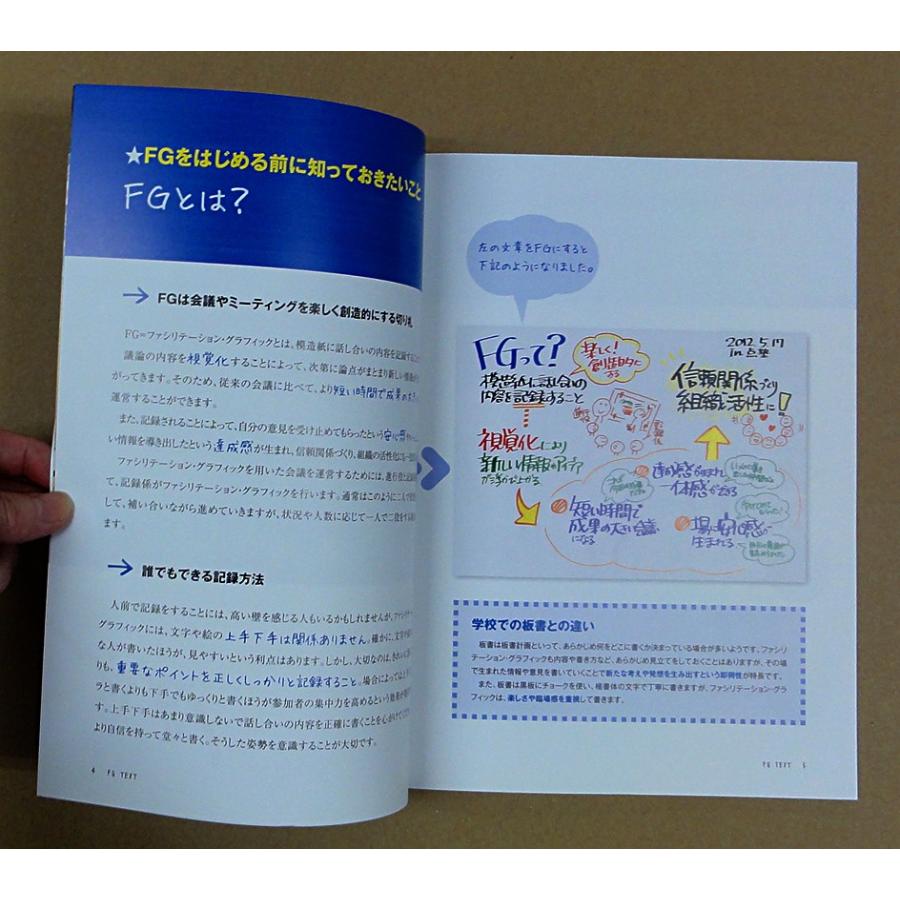 ★FGをはじめる前に知っておきたいこと
FGとは?
FGは会議やミーティングを楽しく創造的にする切り札
FG=ファシリテーション・グラフィックとは、模造紙に話し合いの内容を記録する
議論の内容を視覚化することによって、次第に論点がまとまり新しい
がってきます。そのため、従来の会議に比べて、より短い時間で成果の大
運営することができます。
また、記録されることによって、自分の意見を受け止めてもらったという安心感
い情報を導き出したという達成感が生まれ、信頼関係づくり、組織の活性化にも
ファシリテーション・グラフィックを用いた会議を運営するためには、進行役と記録
て、記録係がファシリテーション・グラフィックを行います。通常はこのように二人で
して、補い合いながら進めていきますが、状況や人数に応じて一人で二役をする
ます。
誰でもできる記録方法
人前で記録をすることには、高い壁を感じる人もいるかもしれませんが、ファシリテー
グラフィックには、文字や絵の上手下手は関係ありません。確かに、文字や絵
な人が書いたほうが、見やすいという利点はあります。しかし、大切なのは、きれい
りも、重要なポイントを正しくしっかりと記録すること。場合によっては
ラと書くよりも下手でもゆっくりと書くほうが参加者の集中力を高めるという効果が
す。上手下手はあまり意識しないで話し合いの内容を正確に書くことを心がけて
より自信を持って堂々と書く。そうした姿勢を意識することが大切です。
4 FG TEXT
左の文章をFGにすると
下記のようになりました。
FGって?
楽しく!
創造的に
する
模造紙に話し合いの
内容を記録すること
2012.5.17
信頼関係づくり
組織も活性に!
視覚化により
新しい情報やアイデア
が浮かび上がる
短い時間で
成果の大きい会議
になる
達成感が生まれ
一体感が高まる
場に安心感が
生まれる
学校での板書との違い
板書は板書計画といって、あらかじめ何をどこに書くか決まっている場合が多いようです。ファシリ
テーション・グラフィックも内容や書き方など、あらかじめ見立てをしておくことはありますが、その場
で生まれた情報や意見を書いていくことで新たな考えや発想を生み出すという即興性が特長です。
また、板書は黒板にチョークを使い、楷書体の文字で丁寧に書きますが、ファシリテーション・グラ
フィックは、楽しさや臨場感を重視して書きます。
FG TEXT 5